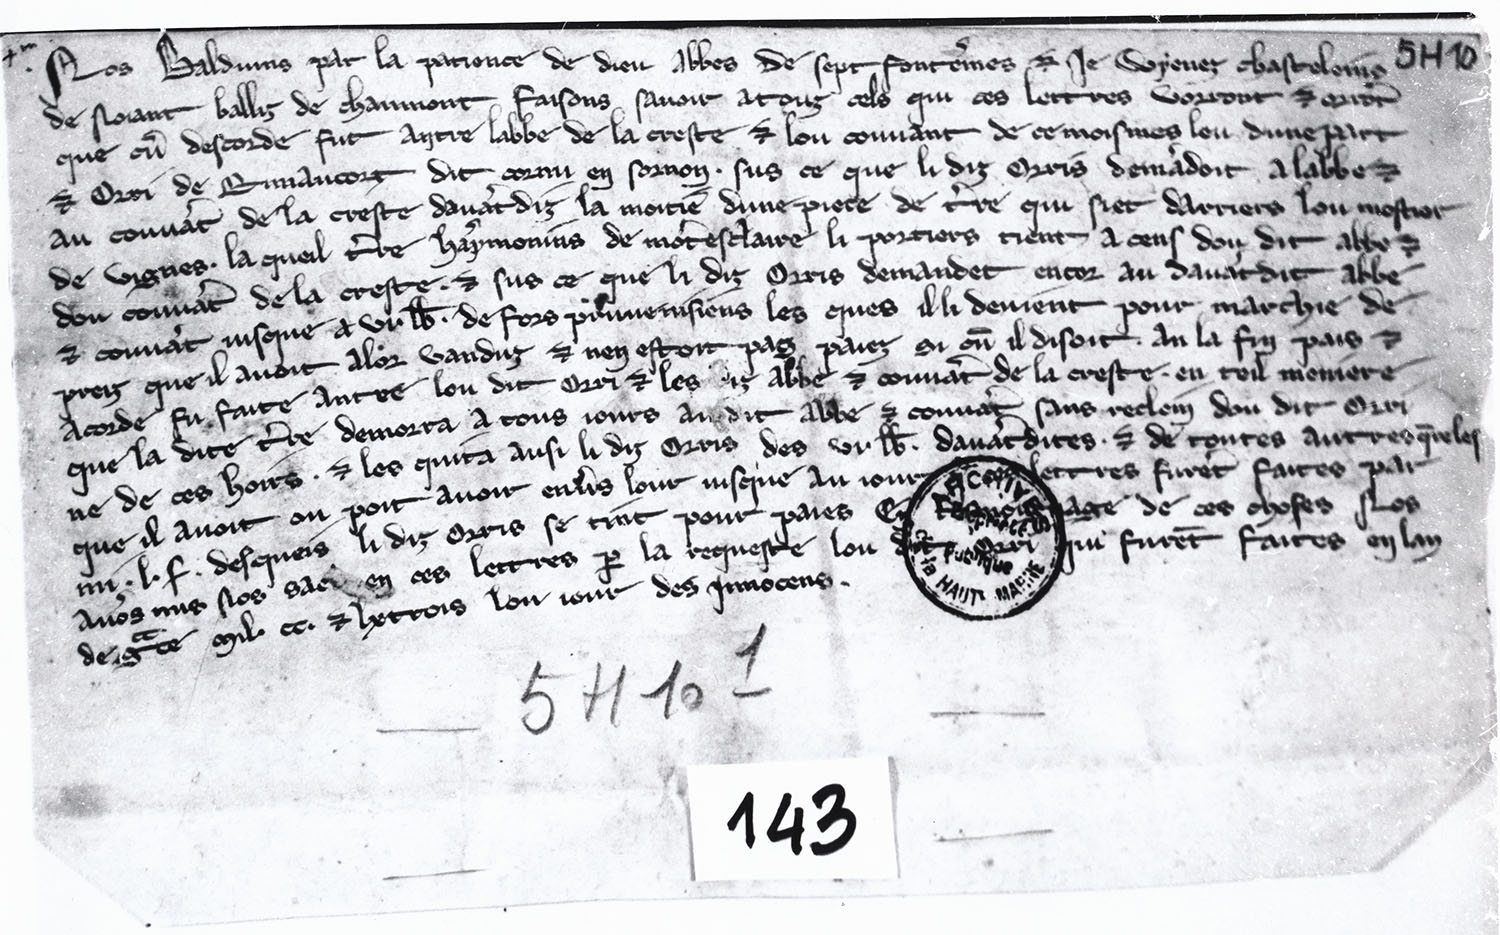 5H10
Nos Balduins par la patience de dieu Abbes de sept fonteines ⁊ Je Wyenez chasteleins
de noiant balliz de chaumont faisons savoir a touz cels qui ces lettres vorront ⁊ orront
que cū descorde fut antre labbe de la creste ⁊ lou couvant de ce moismes leu dune part
⁊ Orri de dit cornu en sornon . sus ce que li diz Orris demādoit a labbe ⁊
au couvāt de la creste davātdiz la moitie dune piece de t̄re qui siet darriers lou mostier
de vignes . la queil t̄re haymonins de mōtesclaire li portiers tient a cens dou dit abbe ⁊
dou couvāt de la creste . ⁊ sus ce que li diz Orris demandet encor au davātdit abbe
⁊ couvāt iusque a vii lb̄ . de fors prouvenisiens les ques il li devient pour marchie de
preiz que il avoit alor vanduz ⁊ nen estoit pas paiez si cū il disoit . an la fin pais ⁊
acorde fu faite antre lou dit Orri ⁊ les diz abbe ⁊ couvāt de la creste . en teil meniere
que la dite t̄re demorra a tous iours au dit abbe ⁊ couvāt sans reclein dou dit Orri
ne de ces hoirs . ⁊ les quita ausi li diz Orris des vii lb̄ . davātdites . ⁊ de toutes autres q̄reles
que il avoit ou poit avoir env̄s lour iusque au iour lettres furēt faites par
mi . l . f . desqueis li diz Orris se tint pour paies En tesmoignage de ces choses Nos
avōs mis nos sael en ces lettres ꝑ la requeste lou dit Orri qui furēt faites en lan
de gce mil . cc . ⁊ lxtrois lou iour des Innocens .
ARCHIVES
HAUTE MARNE
5 H 10 1
143